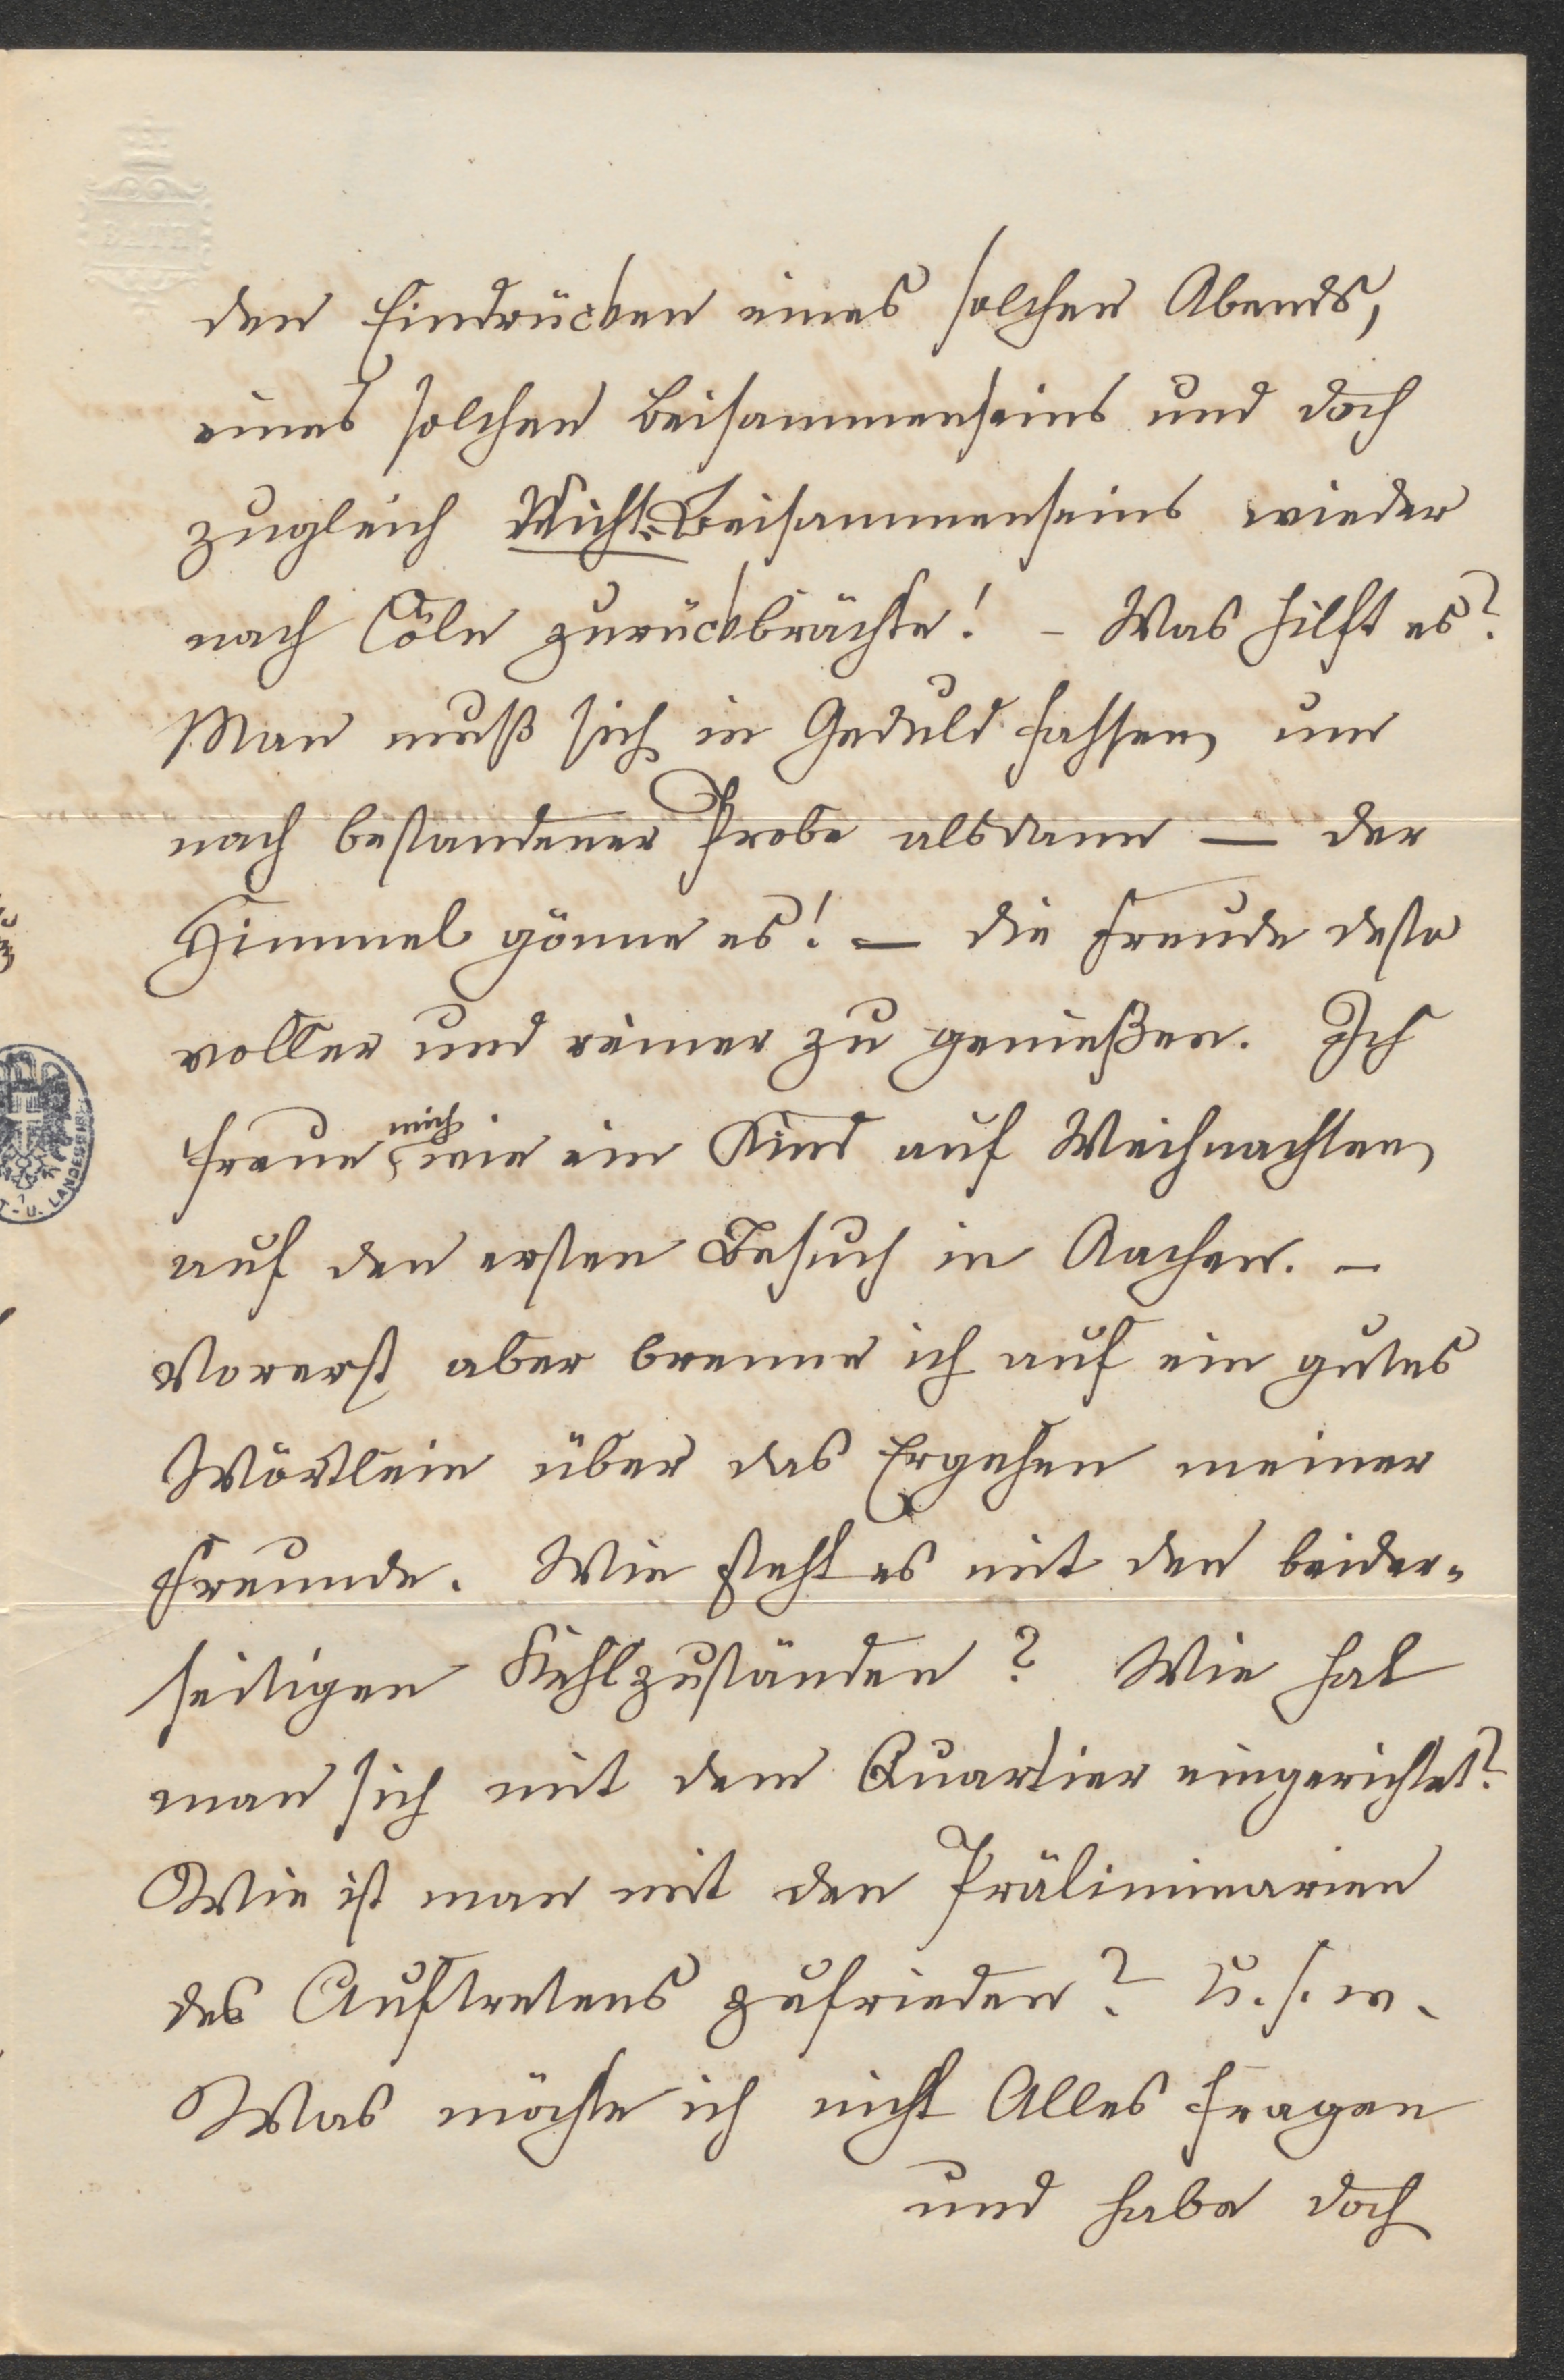 den Eindrücken eines solchen Abends,
eines solchen Beisammenseins und doch
zugleich Nicht-Beisammenseins wieder
nach Cöln zurückbrächte! – Was hilft es?
Man muß sich in Geduld fassen, um
nach bestandener Probe alsdann — der
Himmel gönne es! — die Freude desto
voller und reiner zu genießen. Ich
freue mich wie ein Kind auf Weihnachten,
auf den ersten Besuch in Aachen. –
Vorerst aber brenne ich auf ein gutes
Wörtlein über das Ergehen meiner
Freunde. Wie steht es mit den beider-
seitigen Kehlzuständen? Wie hat
man sich mit dem Quartier eingerichtet?
Wie ist man mit den Präliminarien
des Auftretens zufrieden? U. s. w.
Was möchte ich nicht Alles fragen
und habe doch
BATH
T.- U. LANDESBIB